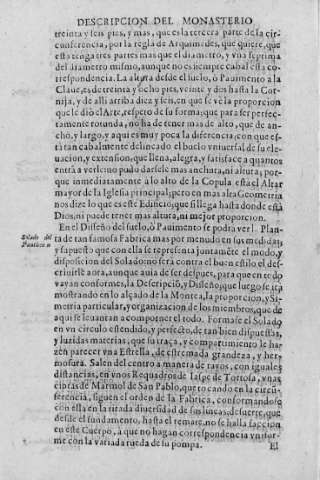 DESCRIPCION DEL MONASTERIO
treinta y seis pies, y mas, que es la tercera parte de la cir-
cunferencia, por la regla de Arquimides, que quiere, que
esta tenga tres partes mas que el diametro, y vna septima
del diametro mismo, aunque no es siempre cabal esta co-
rrespondencia. La altura desde el suelo, ò Pauimento a la
Claue, es de treinta y ocho pies, veinte y dos hasta la Cor-
nija, y de alli arriba diez y seis, en que se vè la proporcion
que le diò el Arte, respeto de su forma; que para ser perfec-
tamente rotunda, no ha de tener mas de alto, que de an-
cho, y largo, y aqui es muy poca la diferencia, con que es-
tà tan cabalmente delineado el buelo vniuersal de su ele-
uacion, y extension, que llena, alegra, y satisface a quantos
entra à verle; no pudo darsele mas anchura, ni altura; por-
que inmediatamente à lo alto de la Copula està el Altar
mayor de la Iglesia principal; pero en mas alta Geometria
nos dize lo que es este Edificio, que si llega hasta donde està
Dios, ni puede tener mas altura, ni mejor proporcion.
En el Disseño del suelo, ò Pauimento se podrà ver l. Plan-
Solado del
Panteon
ta de tan famosa Fabrica mas por menudo en sus medidas,
y supuesto que con ella se representa juntamẽte el modo, y
disposicion del Solado; no serà contra el buen estilo el des-
criuirle aora, aunque auia de ser despues, para que en todo
vayan conformes, la Descripciõ, y Disseño, que luego se irà
mostrando en lo alçado de la Montea, la proporcion, y Si-
metria particular, y organizacion de los miembros, que de
aqui se leuantan a componer el todo. Formase el Solado
en vn circulo estendido, y perfecto, de tan bien dispuestas,
y luzidas materias, que su traça, y compartimiento le ha-
zen parecer vna Estrella, de estremada grandeza, y her-
mosura. Salen del centro a manera de rayos, con iguales
distancias, en vnos Requadros de Iaspe de Tortosa, vnas
cintas de Marmol de San Pablo, que tocando en la circũ-
ferencia, siguen el orden de la Fabrica, conformandose
con esta en la tirada diuersidad de sus lineas, de suerte, que
desde el fundamento, hasta el remate, no se halla faccion
en este Cuerpo, à que no hagan correspondencia vnifor-
me con la variada rueda de su pompa.
El